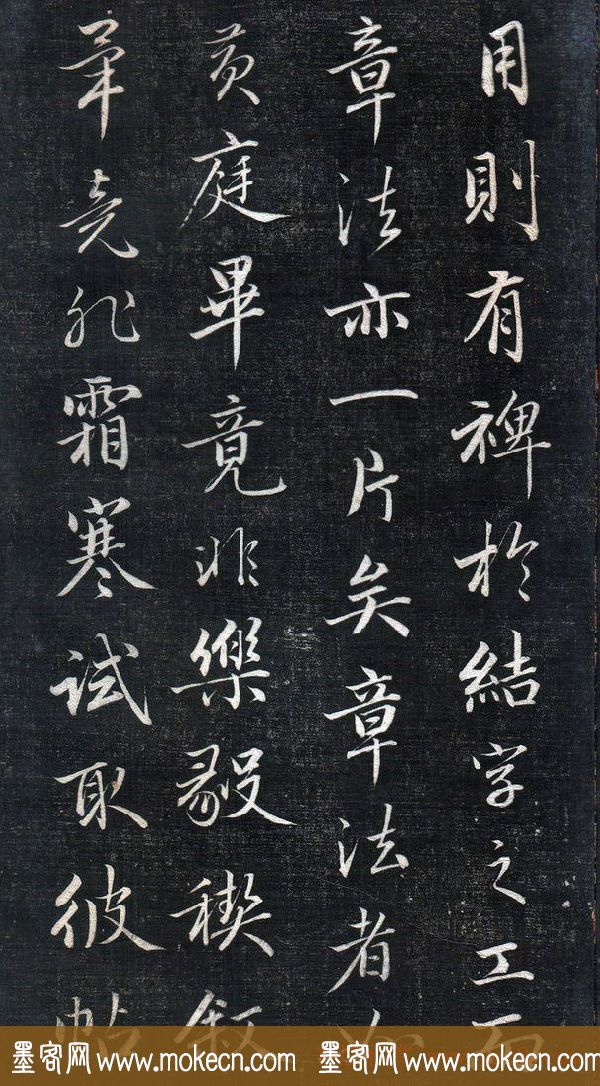 用則有裨於結字之工而
章法亦一片矣章法者
黃庭畢竟非樂毅禊敘
畢竟非霜寒試取彼帖
墨客网 www.mokecn.com 墨客网 www.mokecn.com